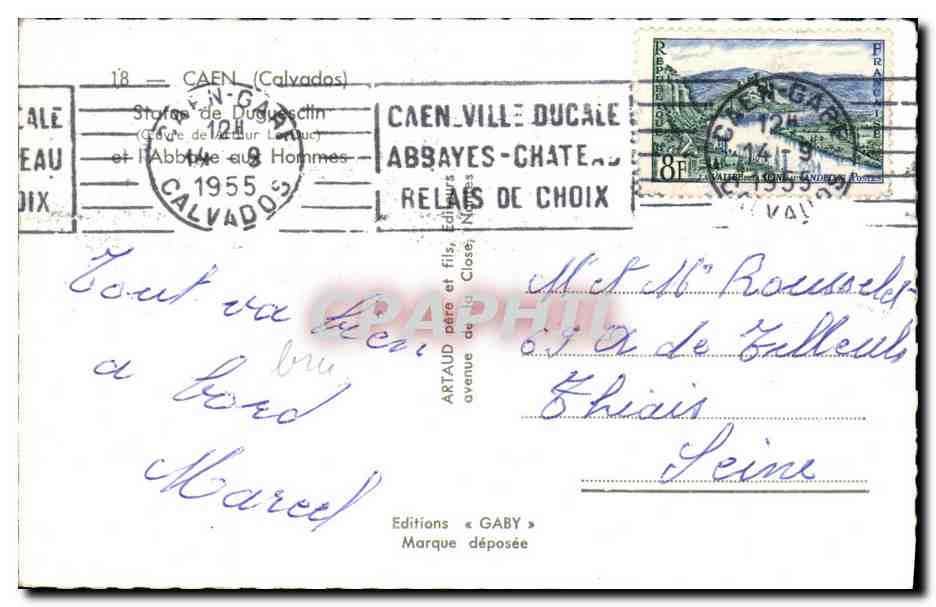 18 — CAEN (Calvados)
Statue de Duguesclin
(Œuvre de Arthur Le Duc)
et l'Abbaye aux Hommes
CALE
EAU
OIX
CAEN-GARE
12H
14 - 9
1955
CALVADOS
CAEN_VILLE DUCALE
ABBAYES-CHATEAU
RELAIS DE CHOIX
REPUBLIQUE
FRANÇAISE
8F
VALLÉE DE LA SEINE AUX ANDELYS POSTES
CAEN-GARE
12H
14 - 9
1955
CALVADOS
Tout va bien
a bord
Marcel
bru
ARTAUD père et fils, Editeurs
avenue de la Close, Nantes
CPAPHIL
Mr et Me
de Tilleuls
Thiais
Seine
Editions « GABY »
Marque déposée